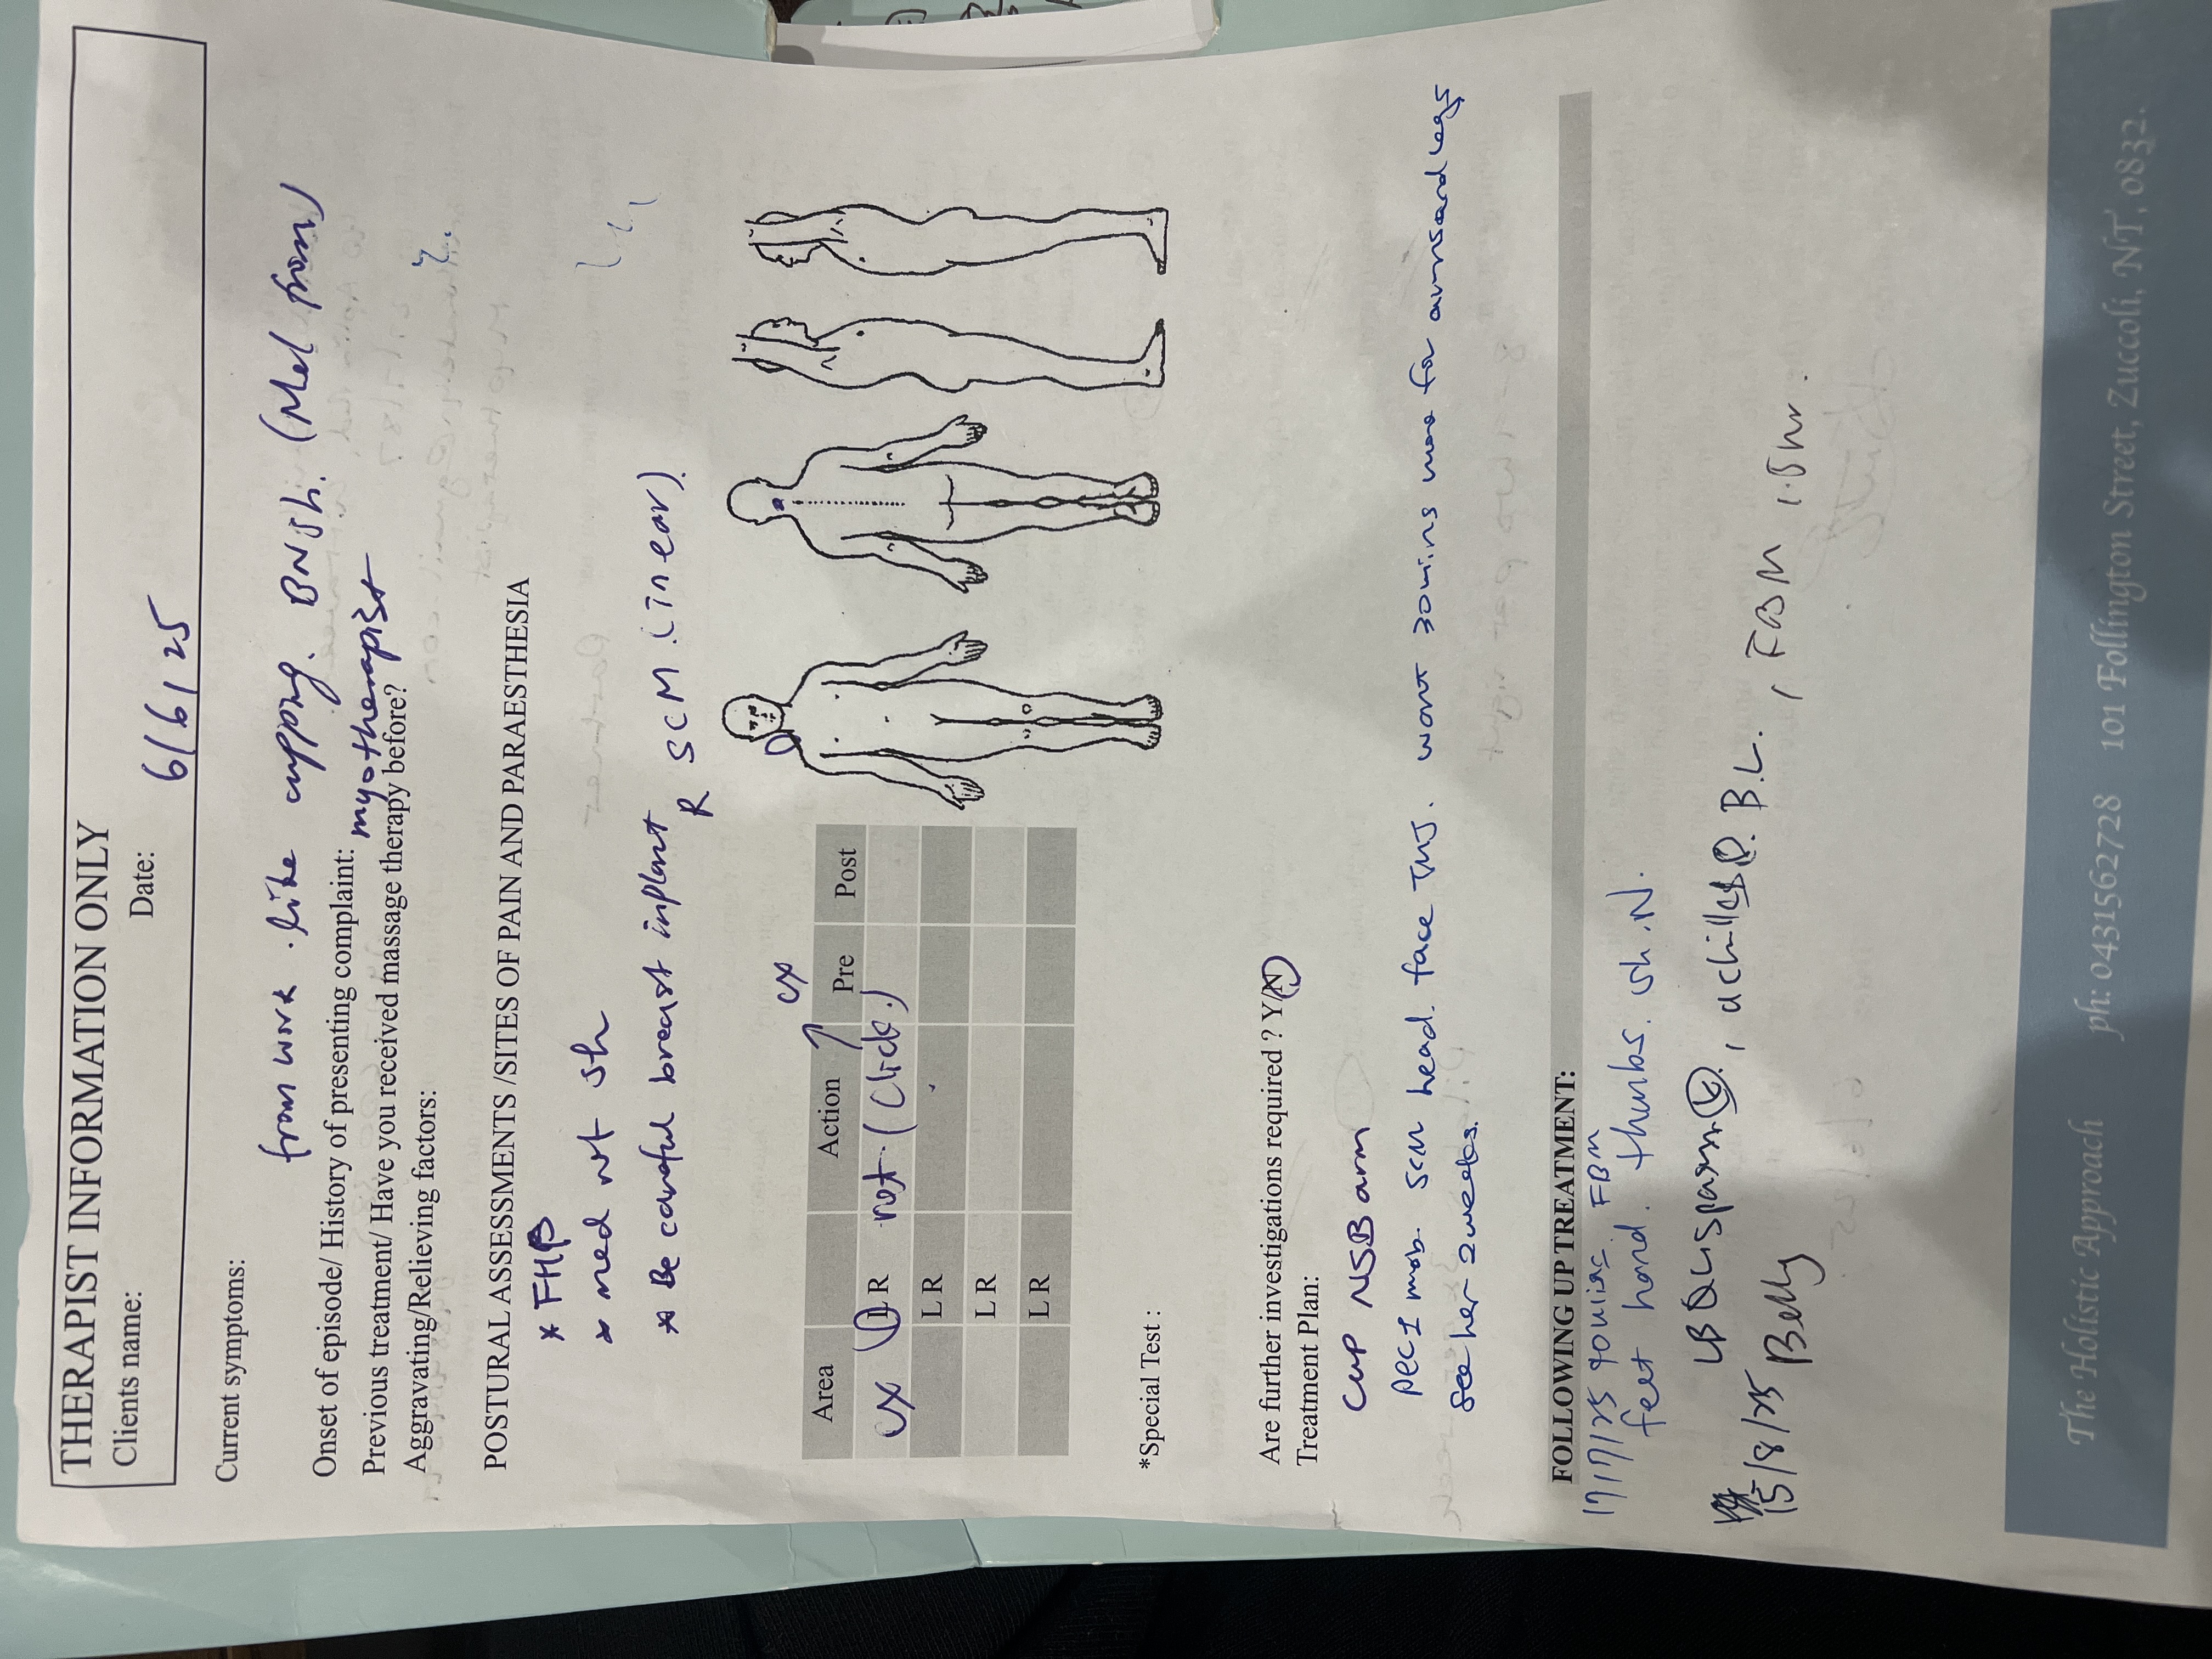 THERAPIST INFORMATION ONLY
Clients name: Date: 6/6/25
Current symptoms: from work. like cupping. BNsh. (Med from)
Onset of episode/ History of presenting complaint:
Previous treatment/ Have you received massage therapy before? myotherapist
Aggravating/Relieving factors:
POSTURAL ASSESSMENTS /SITES OF PAIN AND PARAESTHESIA
* FHP
* med rot sh
* Be careful breast inplant
R SCM (in ear).
cx
Area Action Pre Post
cx L R rot (click)
L R
L R
L R
*Special Test :
Are further investigations required ? Y/N
Treatment Plan:
cup NSB arm
pec 1 mob. scm head. face TMJ. want 30mins more for arms and legs
see her 2 weeks.
FOLLOWING UP TREATMENT:
17/7/25 90mins FBM
feet hand. thumbs. sh. N.
LB QL spasm L, achilles. B.L., FBM 1.5hr.
15/8/25
The Holistic Approach ph: 0431562728 101 Follington Street, Zuccoli, NT, 0832.